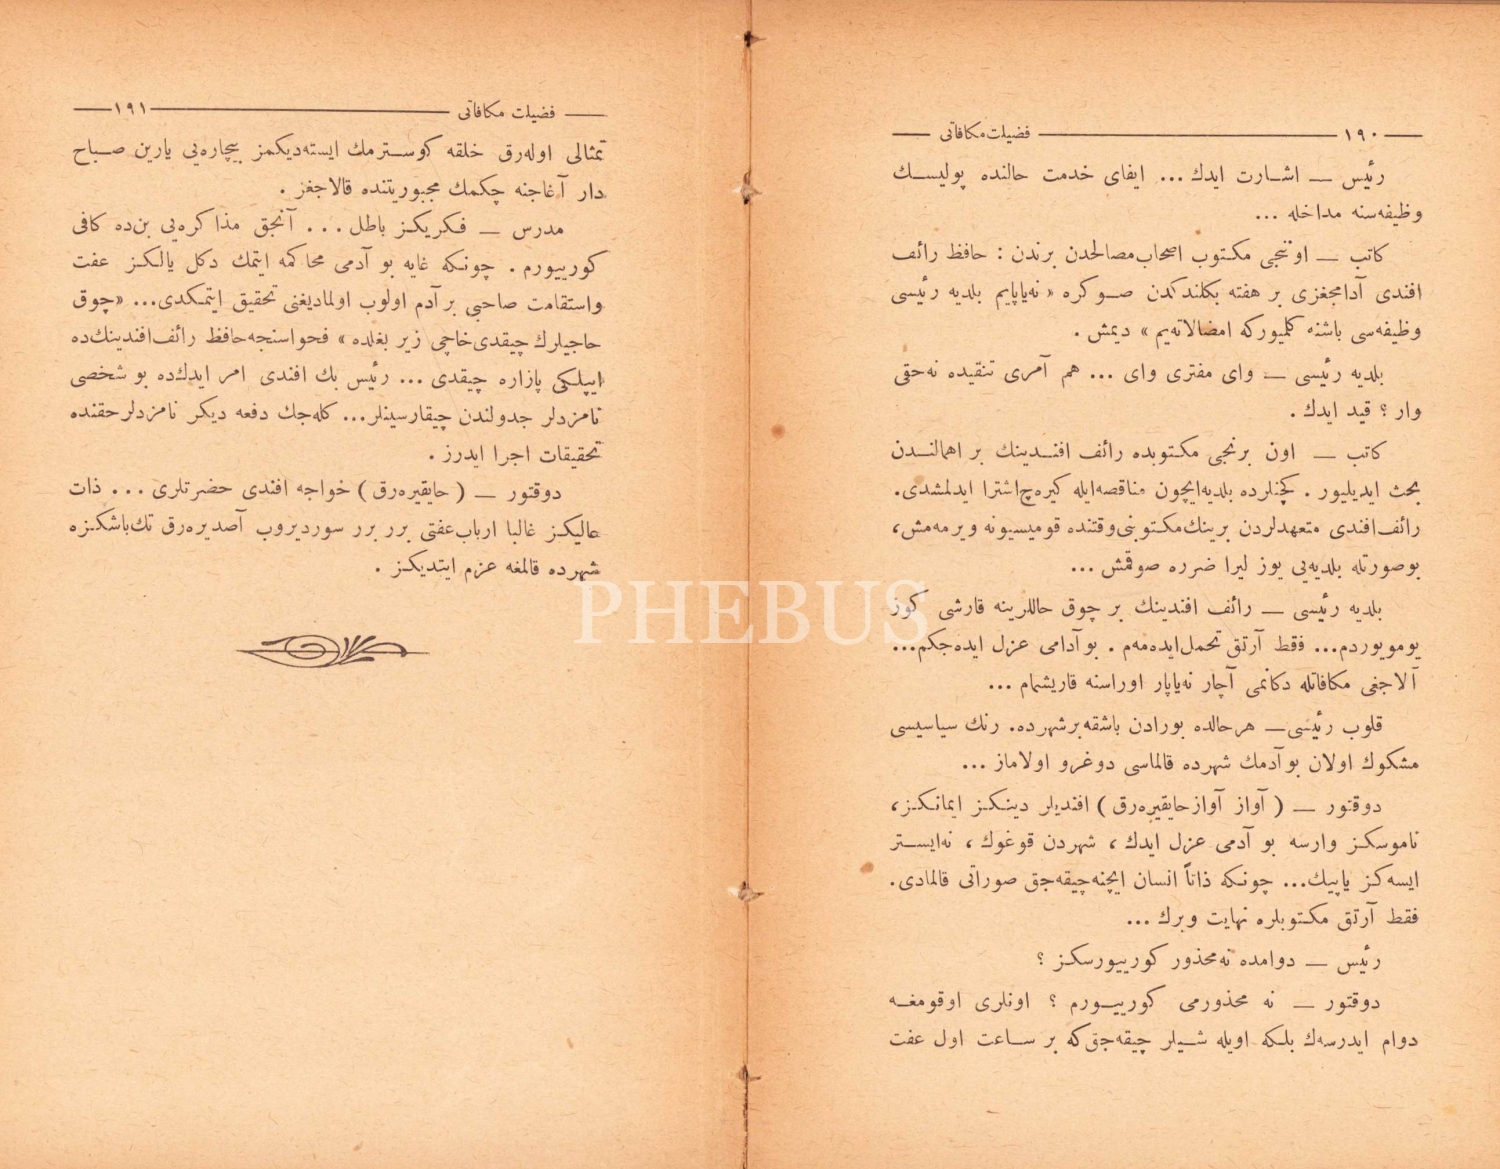 ١٩٠ فضيلت مكافاتى
رئيس — اشارت ايدك ... ايفاى خدمت حالنده پوليسك
وظيفه‌سنه مداخله ...
كاتب — اوننجى مكتوب اصحاب مصالحدن برندن : حافظ رائف
افندى آدامجغزى بر هفته بكلتدكدن صوكره « نه‌ياپايم بلديه رئيسى
وظيفه‌سى باشنه كلميوركه امضالاته‌يم » ديمش .
بلديه رئيسى — واى مفترى واى ... هم آمرى تنقيده نه‌حقى
وار ؟ قيد ايدك .
كاتب — اون برنجى مكتوبده رائف افندينك بر اهمالندن
بحث ايديليور . كچنلرده بلديه‌ايچون مناقصه‌ايله كيره‌ج اشترا ايدلمشدى.
رائف‌افندى متعهدلردن برينك‌مكتوبنى‌وقتنده قوميسيونه ويرمه‌مش،
بوصورتله بلديه‌يى يوز ليرا ضرره صوقمش ...
بلديه رئيسى — رائف افندينك بر چوق حاللرينه قارشى كوز
يومويوردم... فقط آرتق تحمل‌ايده‌مه‌م . بوآدامى عزل ايده‌جكم...
آلاجغى مكافاتله دكانمى آچار نه‌ياپار اوراسنه قاريشمام ...
قلوب رئيسى— هرحالده بورادن باشقه‌برشهرده. رنك سياسيسى
مشكوك اولان بوآدمك شهرده قالماسى دوغرو اولاماز ...
دوقتور — ( آواز آوازحايقيره‌رق ) افنديلر دينكز ايمانكز،
ناموسكز وارسه بو آدمى عزل ايدك ، شهردن قوغوك ، نه‌ايستر
ايسه‌كز ياپيك... چونكه ذاتاً انسان ايچنه‌چيقه‌جق صوراتى قالمادى.
فقط آرتق مكتوبلره نهايت ويرك ...
رئيس — دوامده نه‌محذور كورييورسكز ؟
دوقتور — نه محذورمى كورييورم ؟ اونلرى اوقومغه
دوام ايدرسه‌ك بلكه اويله شيلر چيقه‌جق‌كه بر ساعت اول عفت
فضيلت مكافاتى ١٩١
تمثالى اوله‌رق خلقه كوسترمك ايسته‌ديكمز بيچاره‌يى يارين صباح
دار آغاجنه چكمك مجبوريتنده قالاجغز .
مدرس — فكريكز باطل ... آنجق مذاكره‌يى بن‌ده كافى
كورييورم . چونكه غايه بو آدمى محاكمه ايتمك دكل يالكز عفت
واستقامت صاحبى برآدم اولوب اولماديغنى تحقيق ايتمكدى... «چوق
حاجيلرك چيقدى‌خاچى زير بغلده» فحواسنجه‌حافظ رائف‌افندينك‌ده
ايپلكى پازاره چيقدى ... رئيس بك افندى امر ايدك‌ده بو شخصى
نامزدلر جدولندن چيقارسينلر... كله‌جك دفعه ديكر نامزدلرحقنده
تحقيقات اجرا ايدرز .
دوقتور — ( حايقيره‌رق ) خواجه افندى حضرتلرى ... ذات
عاليكز غالبا ارباب‌عفتى برر برر سورديروب آصديره‌رق تك‌باشكزه
شهرده قالمغه عزم ايتديكز .
PHEBUS